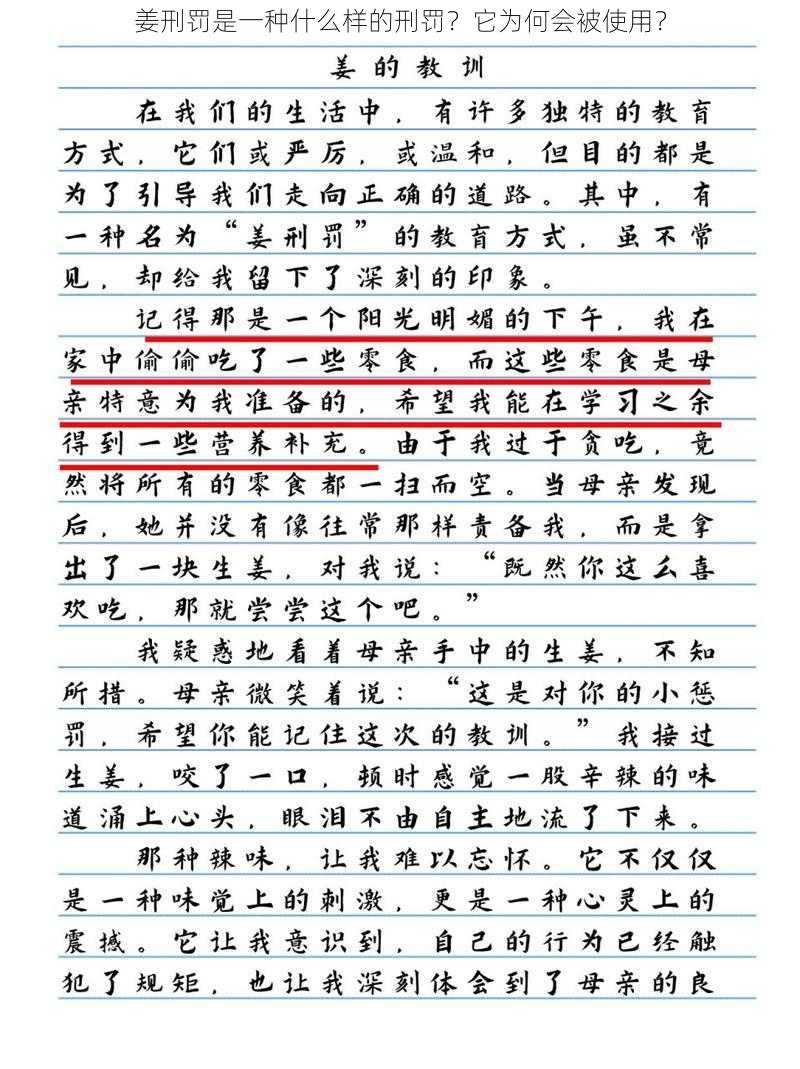 姜刑罚是一种什么样的刑罚？它为何会被使用？
姜的教训
在我们的生活中，有许多独特的教育
方式，它们或严厉，或温和，但目的都是
为了引导我们走向正确的道路。其中，有
一种名为“姜刑罚”的教育方式，虽不常
见，却给我留下了深刻的印象。
记得那是一个阳光明媚的下午，我在
家中偷偷吃了一些零食，而这些零食是母
亲特意为我准备的，希望我能在学习之余
得到一些营养补充。由于我过于贪吃，竟
然将所有的零食都一扫而空。当母亲发现
后，她并没有像往常那样责备我，而是拿
出了一块生姜，对我说：“既然你这么喜
欢吃，那就尝尝这个吧。”
我疑惑地看着母亲手中的生姜，不知
所措。母亲微笑着说：“这是对你的小惩
罚，希望你能记住这次的教训。”我接过
生姜，咬了一口，顿时感觉一股辛辣的味
道涌上心头，眼泪不由自主地流了下来。
那种辣味，让我难以忘怀。它不仅仅
是一种味觉上的刺激，更是一种心灵上的
震撼。它让我意识到，自己的行为已经触
犯了规矩，也让我深刻体会到了母亲的良